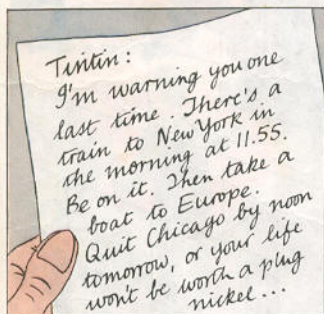 Tintin:
I'm warning you one
last time. There's a
train to New York in
the morning at 11.55.
Be on it. Then take a
boat to Europe.
Quit Chicago by noon
tomorrow, or your life
won't be worth a plug
nickel...